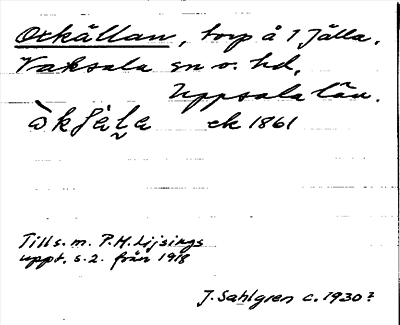 Oxkällan, torp å 1 Jälla,
Vaksala sn o. hd,
Uppsala län.
òkſàḷa ek 1861
Tills. m. P.H. Lijsings
uppt, s. 2. från 1918
J. Sahlgren c. 1930?